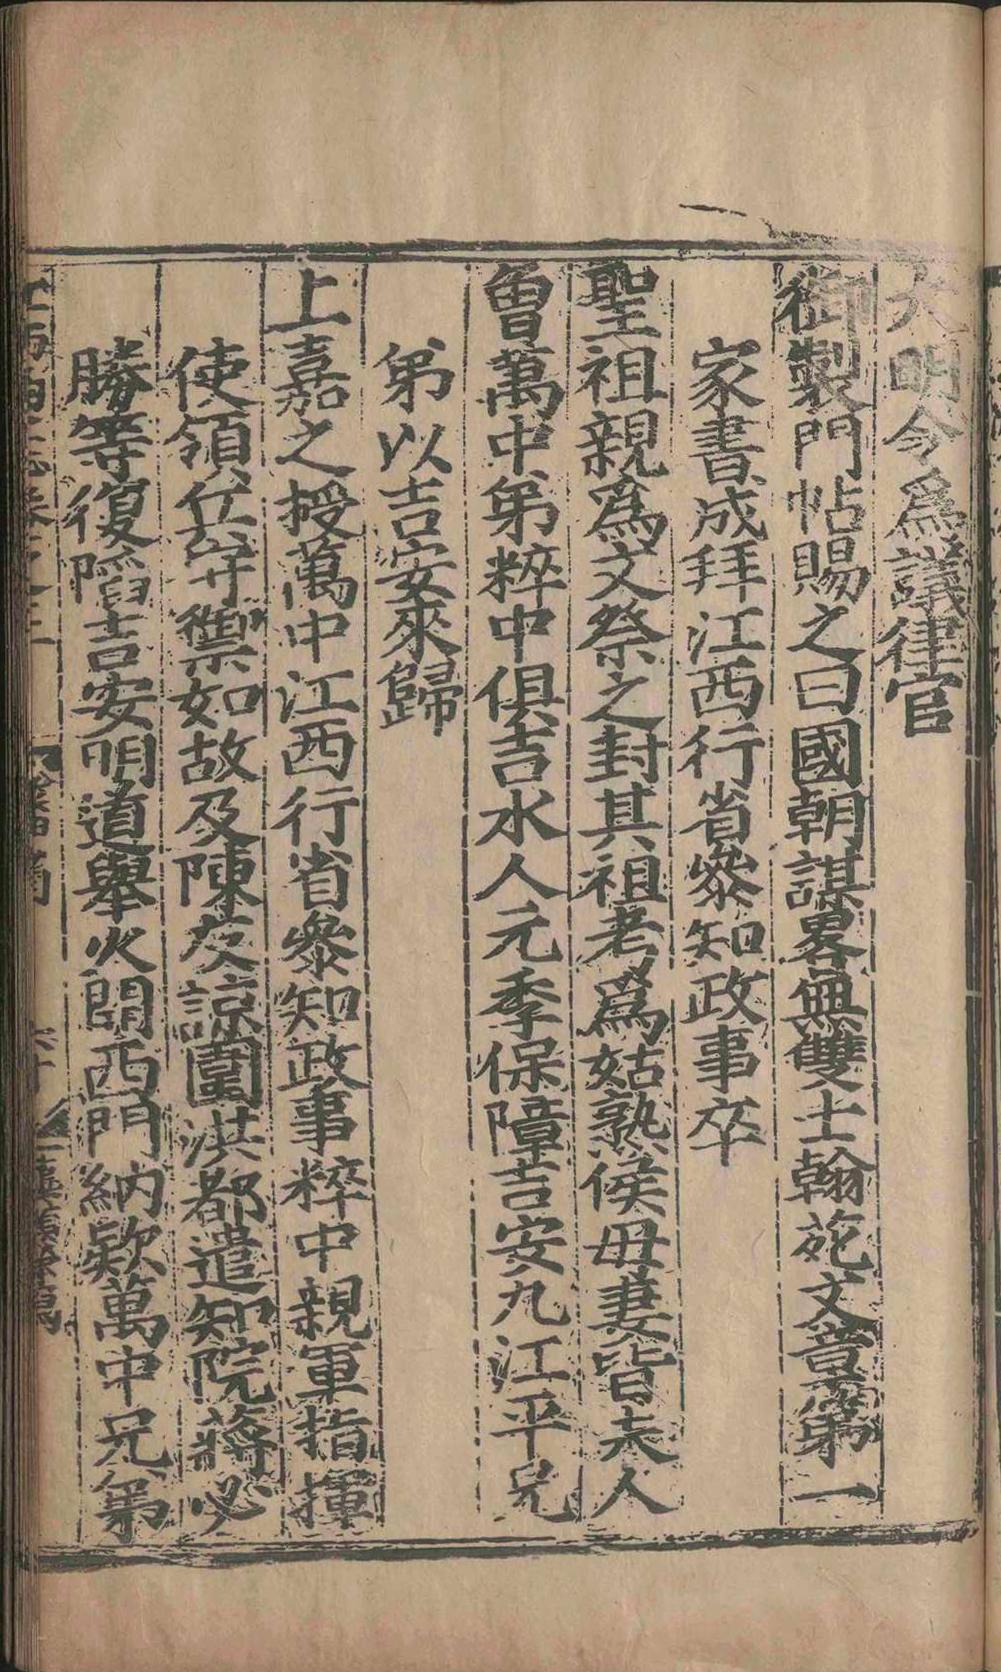 大明令爲議律官
御製門帖賜之曰國朝謀畧無雙士翰苑文章第一
家書成拜江西行省叅知政事卒
聖祖親爲文祭之封其祖考爲姑熟侯母妻皆夫人
曾萬中弟粹中俱吉水人元季保障吉安九江平兄
弟以吉安來歸
上嘉之授萬中江西行省叅知政事粹中親軍指揮
使領兵守禦如故及陳友諒圍洪都遣知院蔣必
勝等復陷吉安明道舉火開西門納欵萬中兄弟